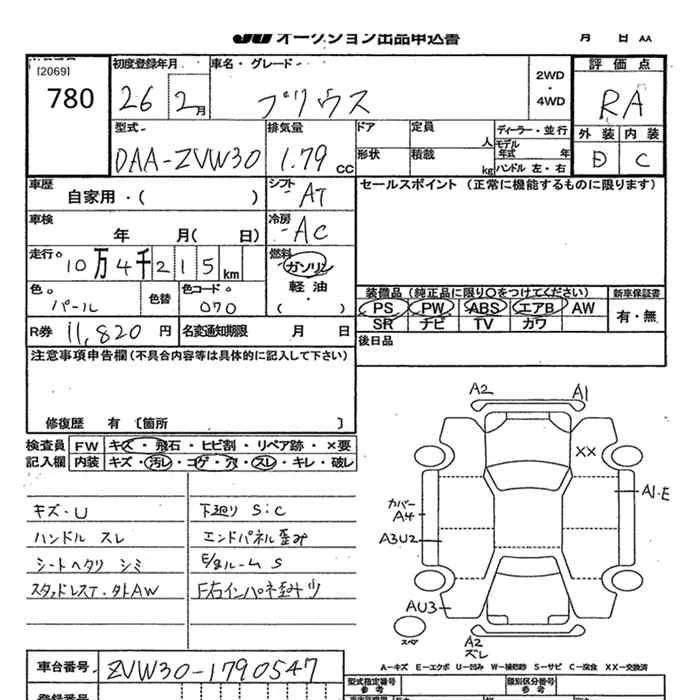 JU オークション出品申込書 月 日 AA
[2069]
780
初度登録年月。 車名・グレード 2WD・4WD
26 2月 プリウス
評価点
RA
外装 内装
D C
型式。 排気量 ドア 定員 人 ディーラー・並行
DAA-ZVW30 1.79 CC 形状 積載 kg モデル年式 年
ハンドル 左・右
車歴 シフト セールスポイント (正常に機能するものに限ります)
自家用・( ) AT
車検 冷房
年 月( 日) AC
走行。 燃料
10万4千215km ガソリン
軽油
色。 色替 色コード。
パール 070
装備品(純正品に限り○をつけてください) 新車保証書
PS PW ABS エアB AW 有・無
SR ナビ TV カワ
R券 11,820 円 名変通知期限 月 日
後日品
注意事項申告欄(不具合内容等は具体的に記入して下さい)
修復歴 有 〔箇所 〕
検査員 FW キズ・飛石・ヒビ割・リペア跡・×要
記入欄 内装 キズ・汚レ・コゲ・穴・スレ・キレ・破レ
キズ・U 下廻り S:C
ハンドル スレ エンドパネル歪み
シートヘタリ シミ E/gルーム S
スタッドレスT・外AW F右インパネ歪み少
A2 A1
XX
A1・E
カバー
A4
A3U2
AU3
スペア
A2
ズレ
車台番号 ZVW30-1790547
A-キズ E-エクボ U-凹み W-補修跡 S-サビ C-腐食 XX-交換済
型式指定番号 類別区分番号
参考
登録番号